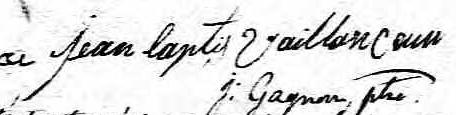 de Jean bapts Vaillancour
J: Gagnon, ptre.